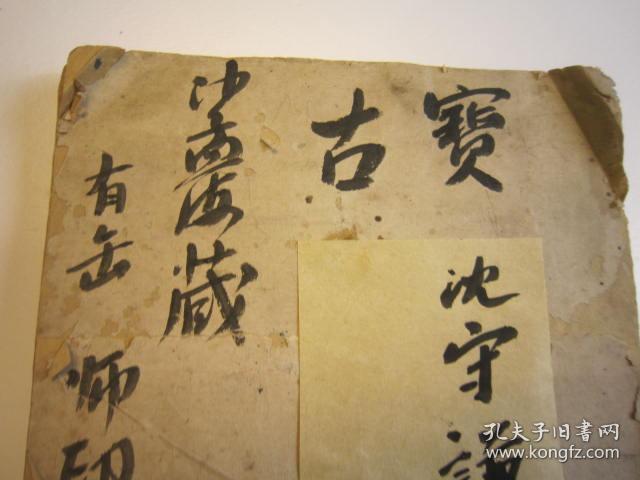 寶
古
沈守
沙孟海藏
有缶师印
孔夫子旧书网
www.kongfz.com